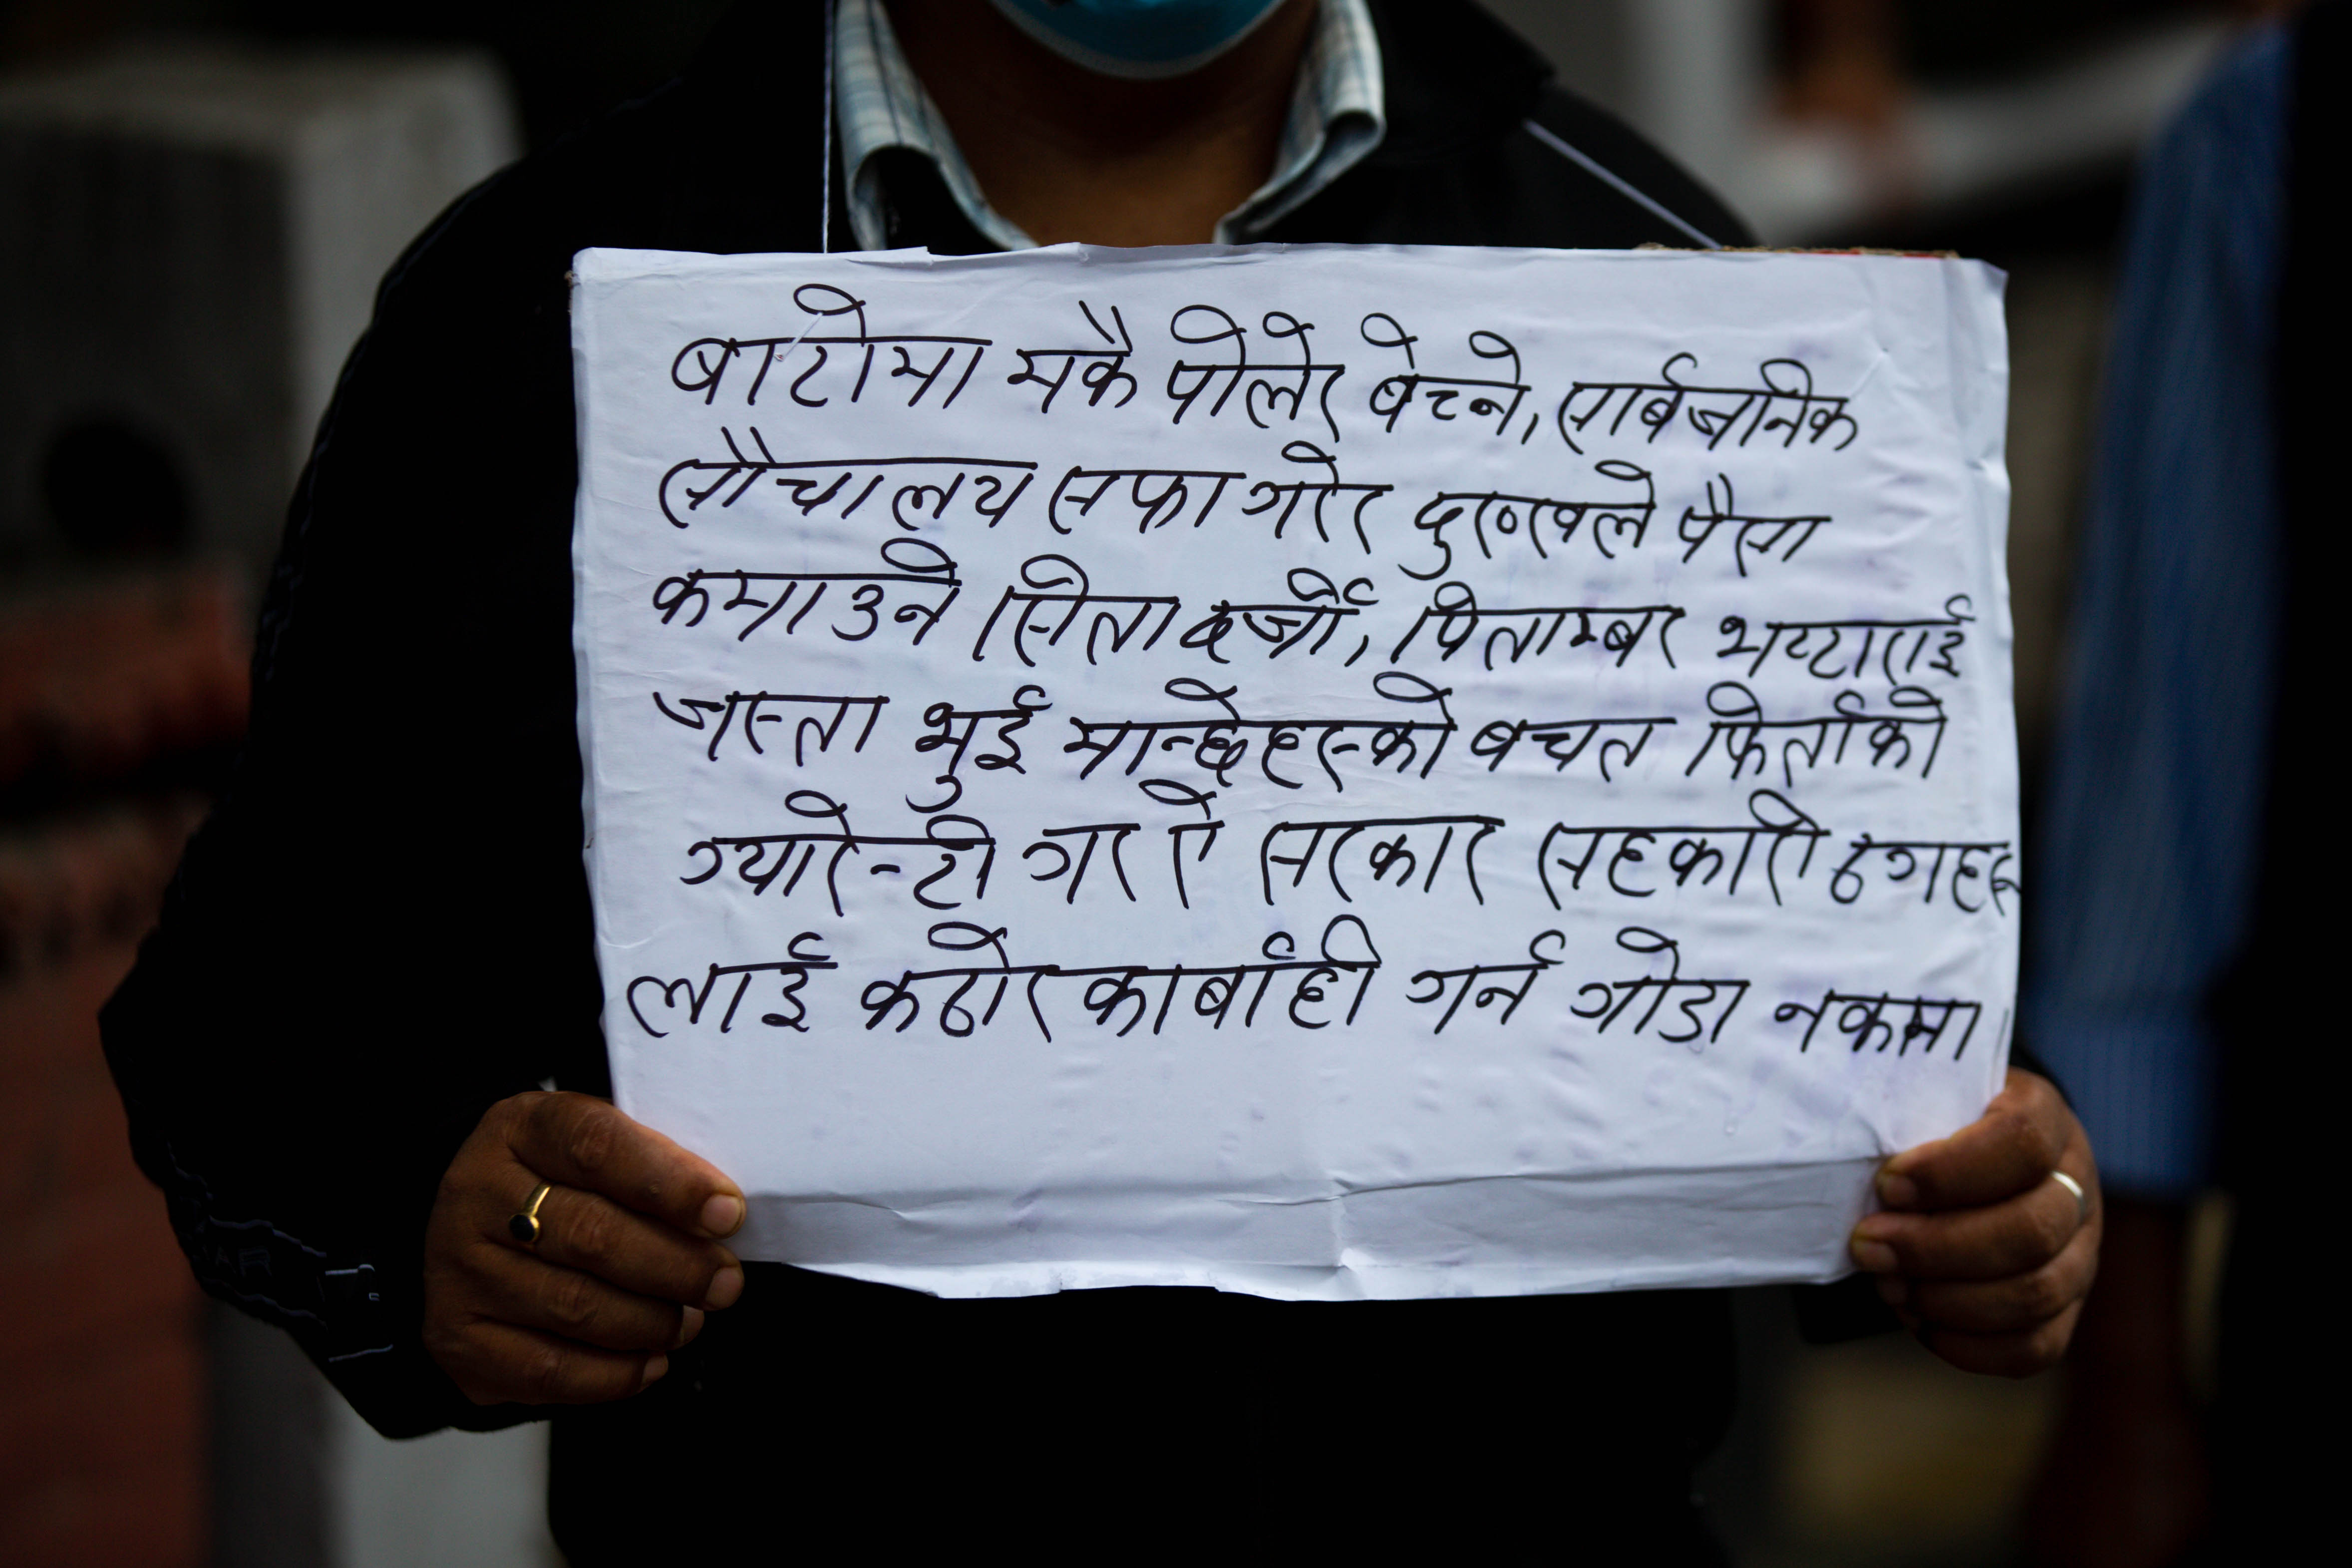 बाटोमा मकै पोलेर बेच्ने, सार्बजानिक
सौचालय सफा गरेर दुःखले पैसा
कमाउने सिता दर्जी, पिताम्बर भट्टाराई
जस्ता भुई मान्छेहरुको बचत फिर्ताको
ग्यारेन्टी गर ऐ सरकार सहकारी ठगहरु
लाई कठोर कार्बाही गर्न गोडा नकमा